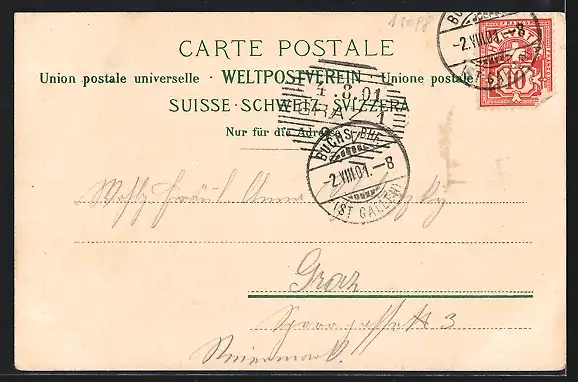 11098
CARTE POSTALE
Union postale universelle · WELTPOSTVEREIN · Unione postale
SUISSE · SCHWEIZ · SVIZZERA
Nur für die Adresse
FRANCO
10
-2.VIII.01.-8
(ST GALLEN)
4.8.01
GRAZ 1
BUCHS BHF.
-2.VIII.01.-8
(ST GALLEN)
Wohlg Fräul Anna
Graz
3
Steiermark.